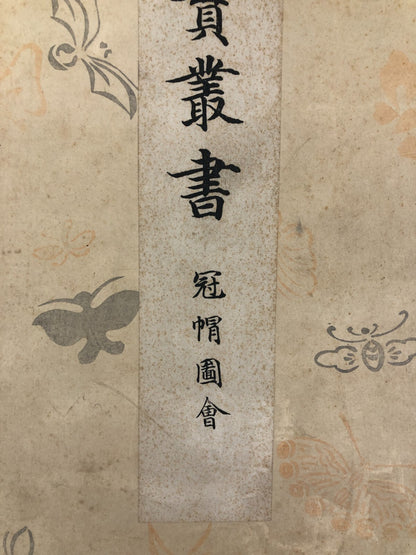 實叢書
冠帽圖會